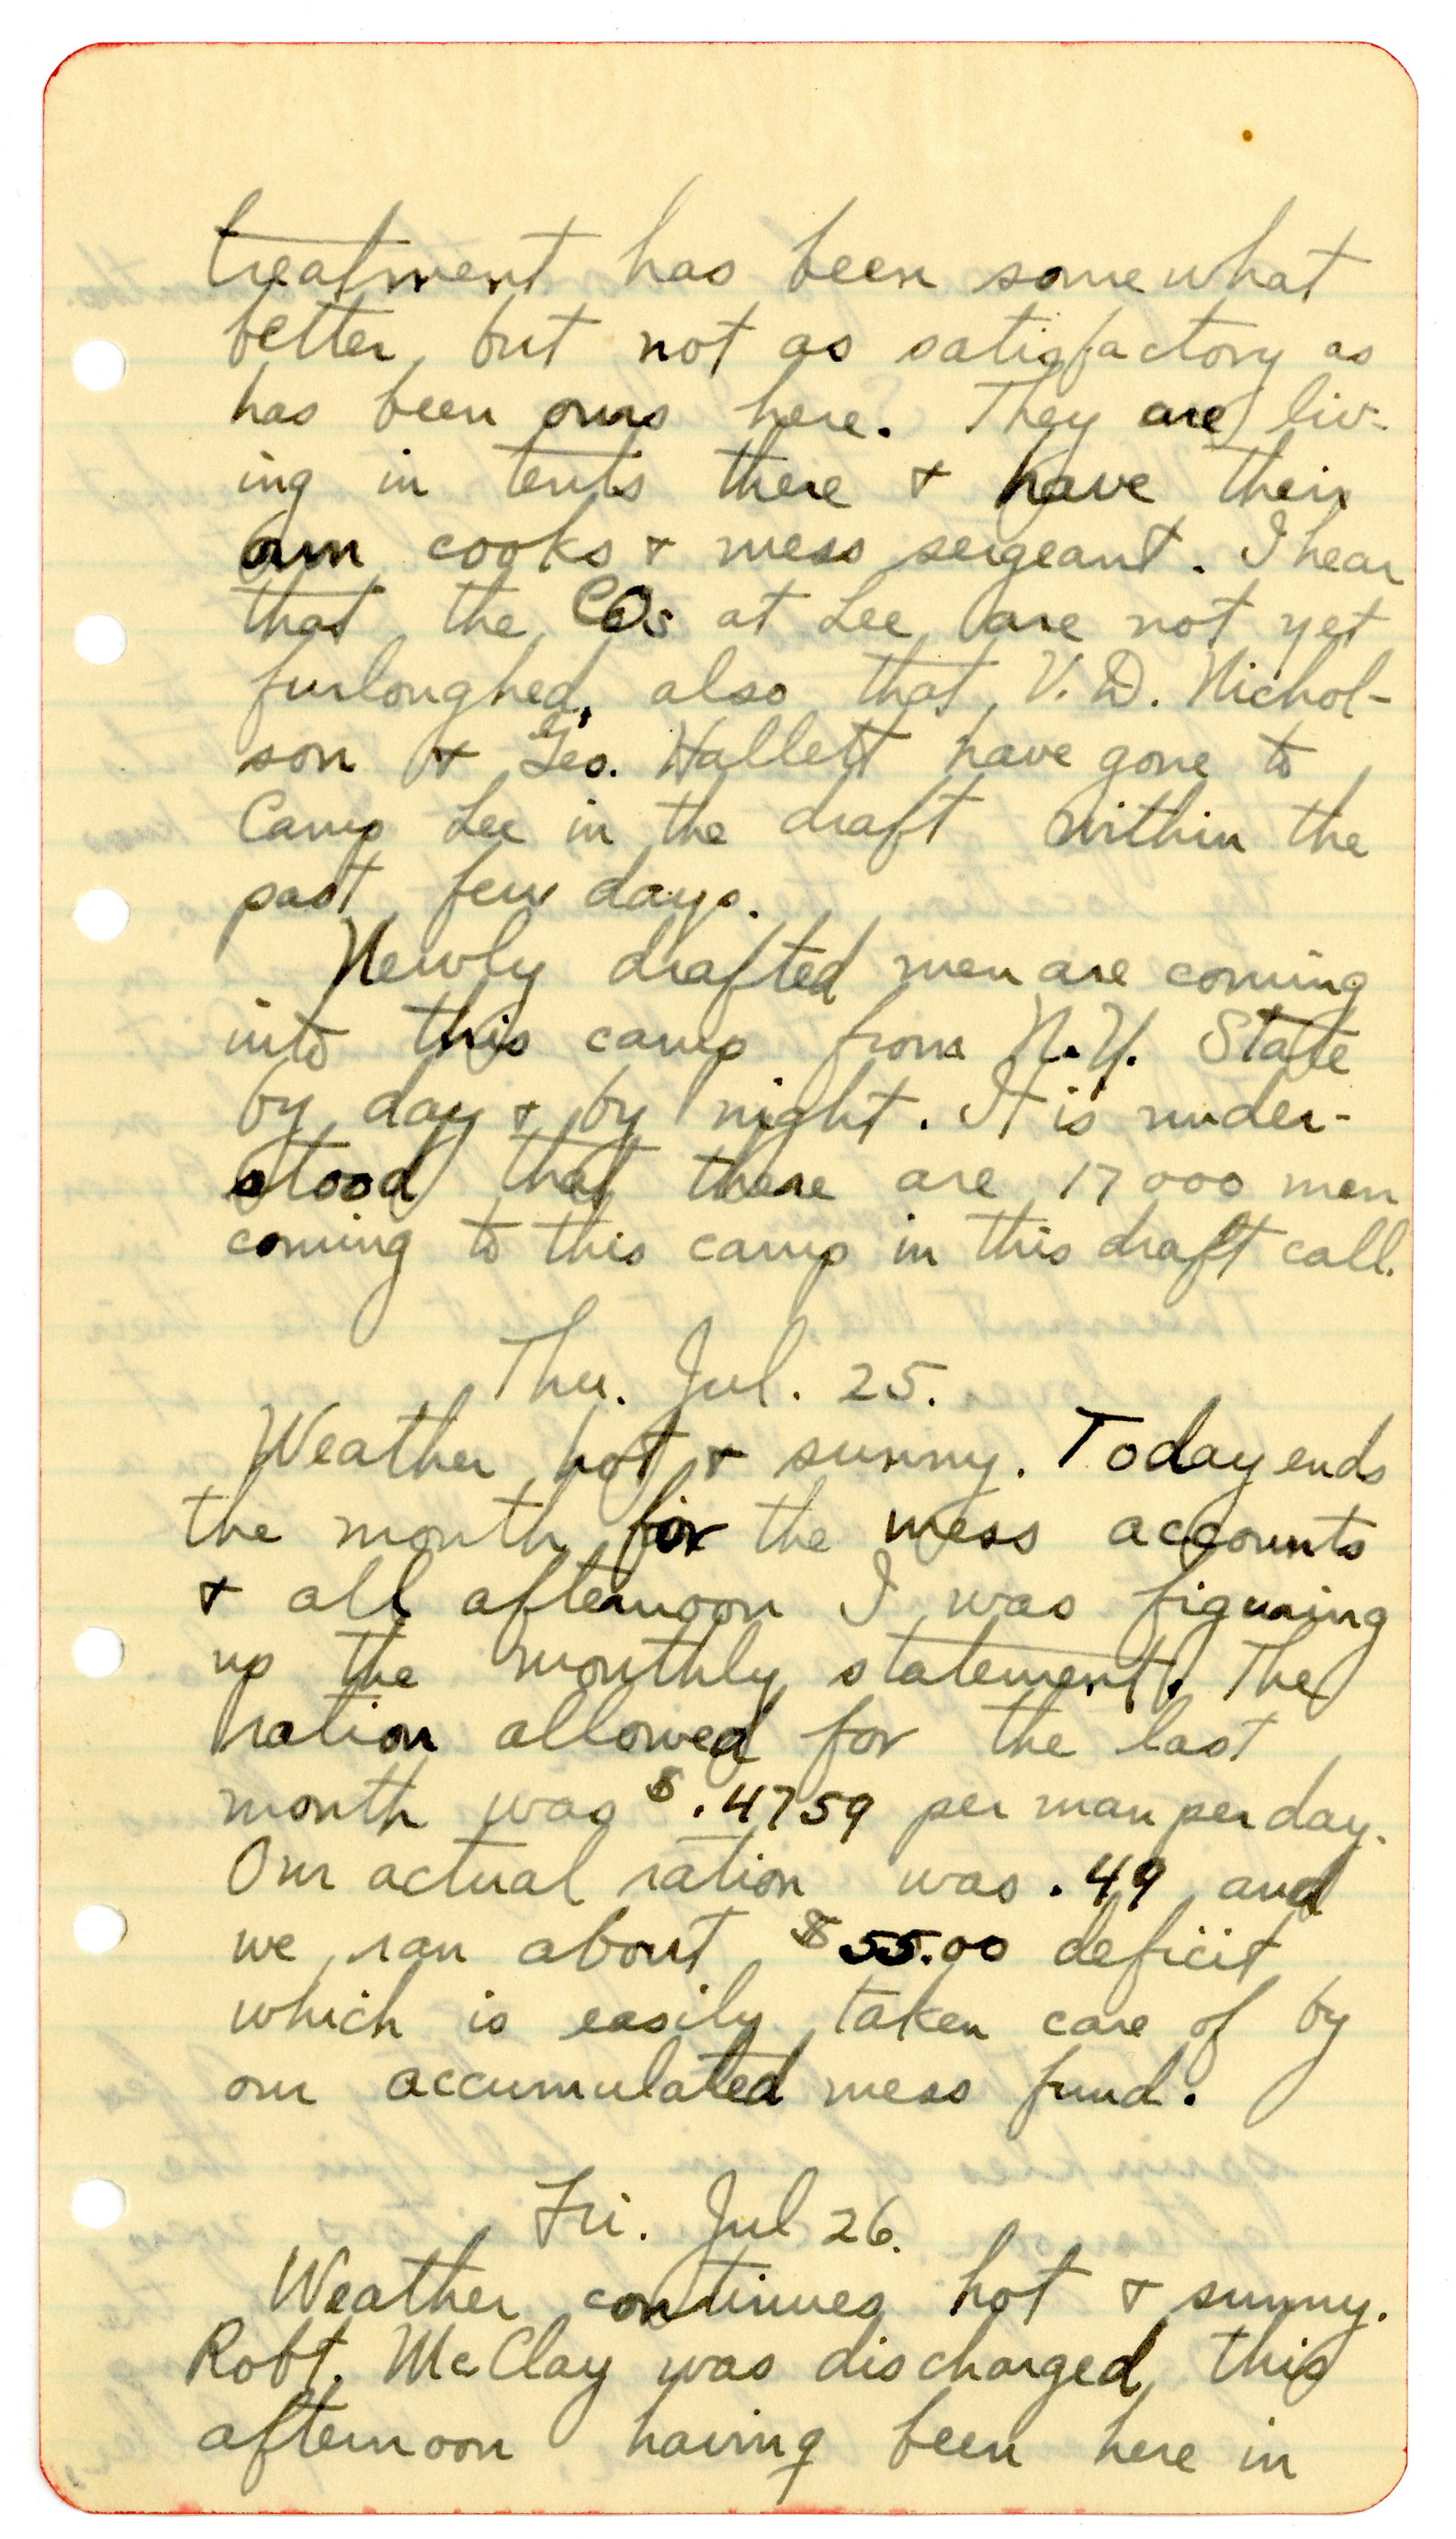 treatment has been somewhat
better, but not as satisfactory as
has been ours here. They are liv-
ing in tents there & have their
own cooks & mess sergeant. I hear
that the COs at Lee are not yet
furloughed, also that V. D. Nichol-
son & Geo. Hallett have gone to
Camp Lee in the draft within the
past few days.
Newly drafted men are coming
into this camp from N.Y. State
by day & by night. It is under-
stood that there are 17000 men
coming to this camp in this draft call.
Thu. Jul. 25.
Weather hot & sunny. Today ends
the month for the mess accounts
& all afternoon I was figuring
up the monthly statement. The
ration allowed for the last
month was $.4759 per man per day.
Our actual ration was .49 and
we ran about $55.00 deficit
which is easily taken care of by
our accumulated mess fund.
Fri. Jul 26.
Weather continues hot & sunny.
Robt. McClay was discharged this
afternoon having been here in